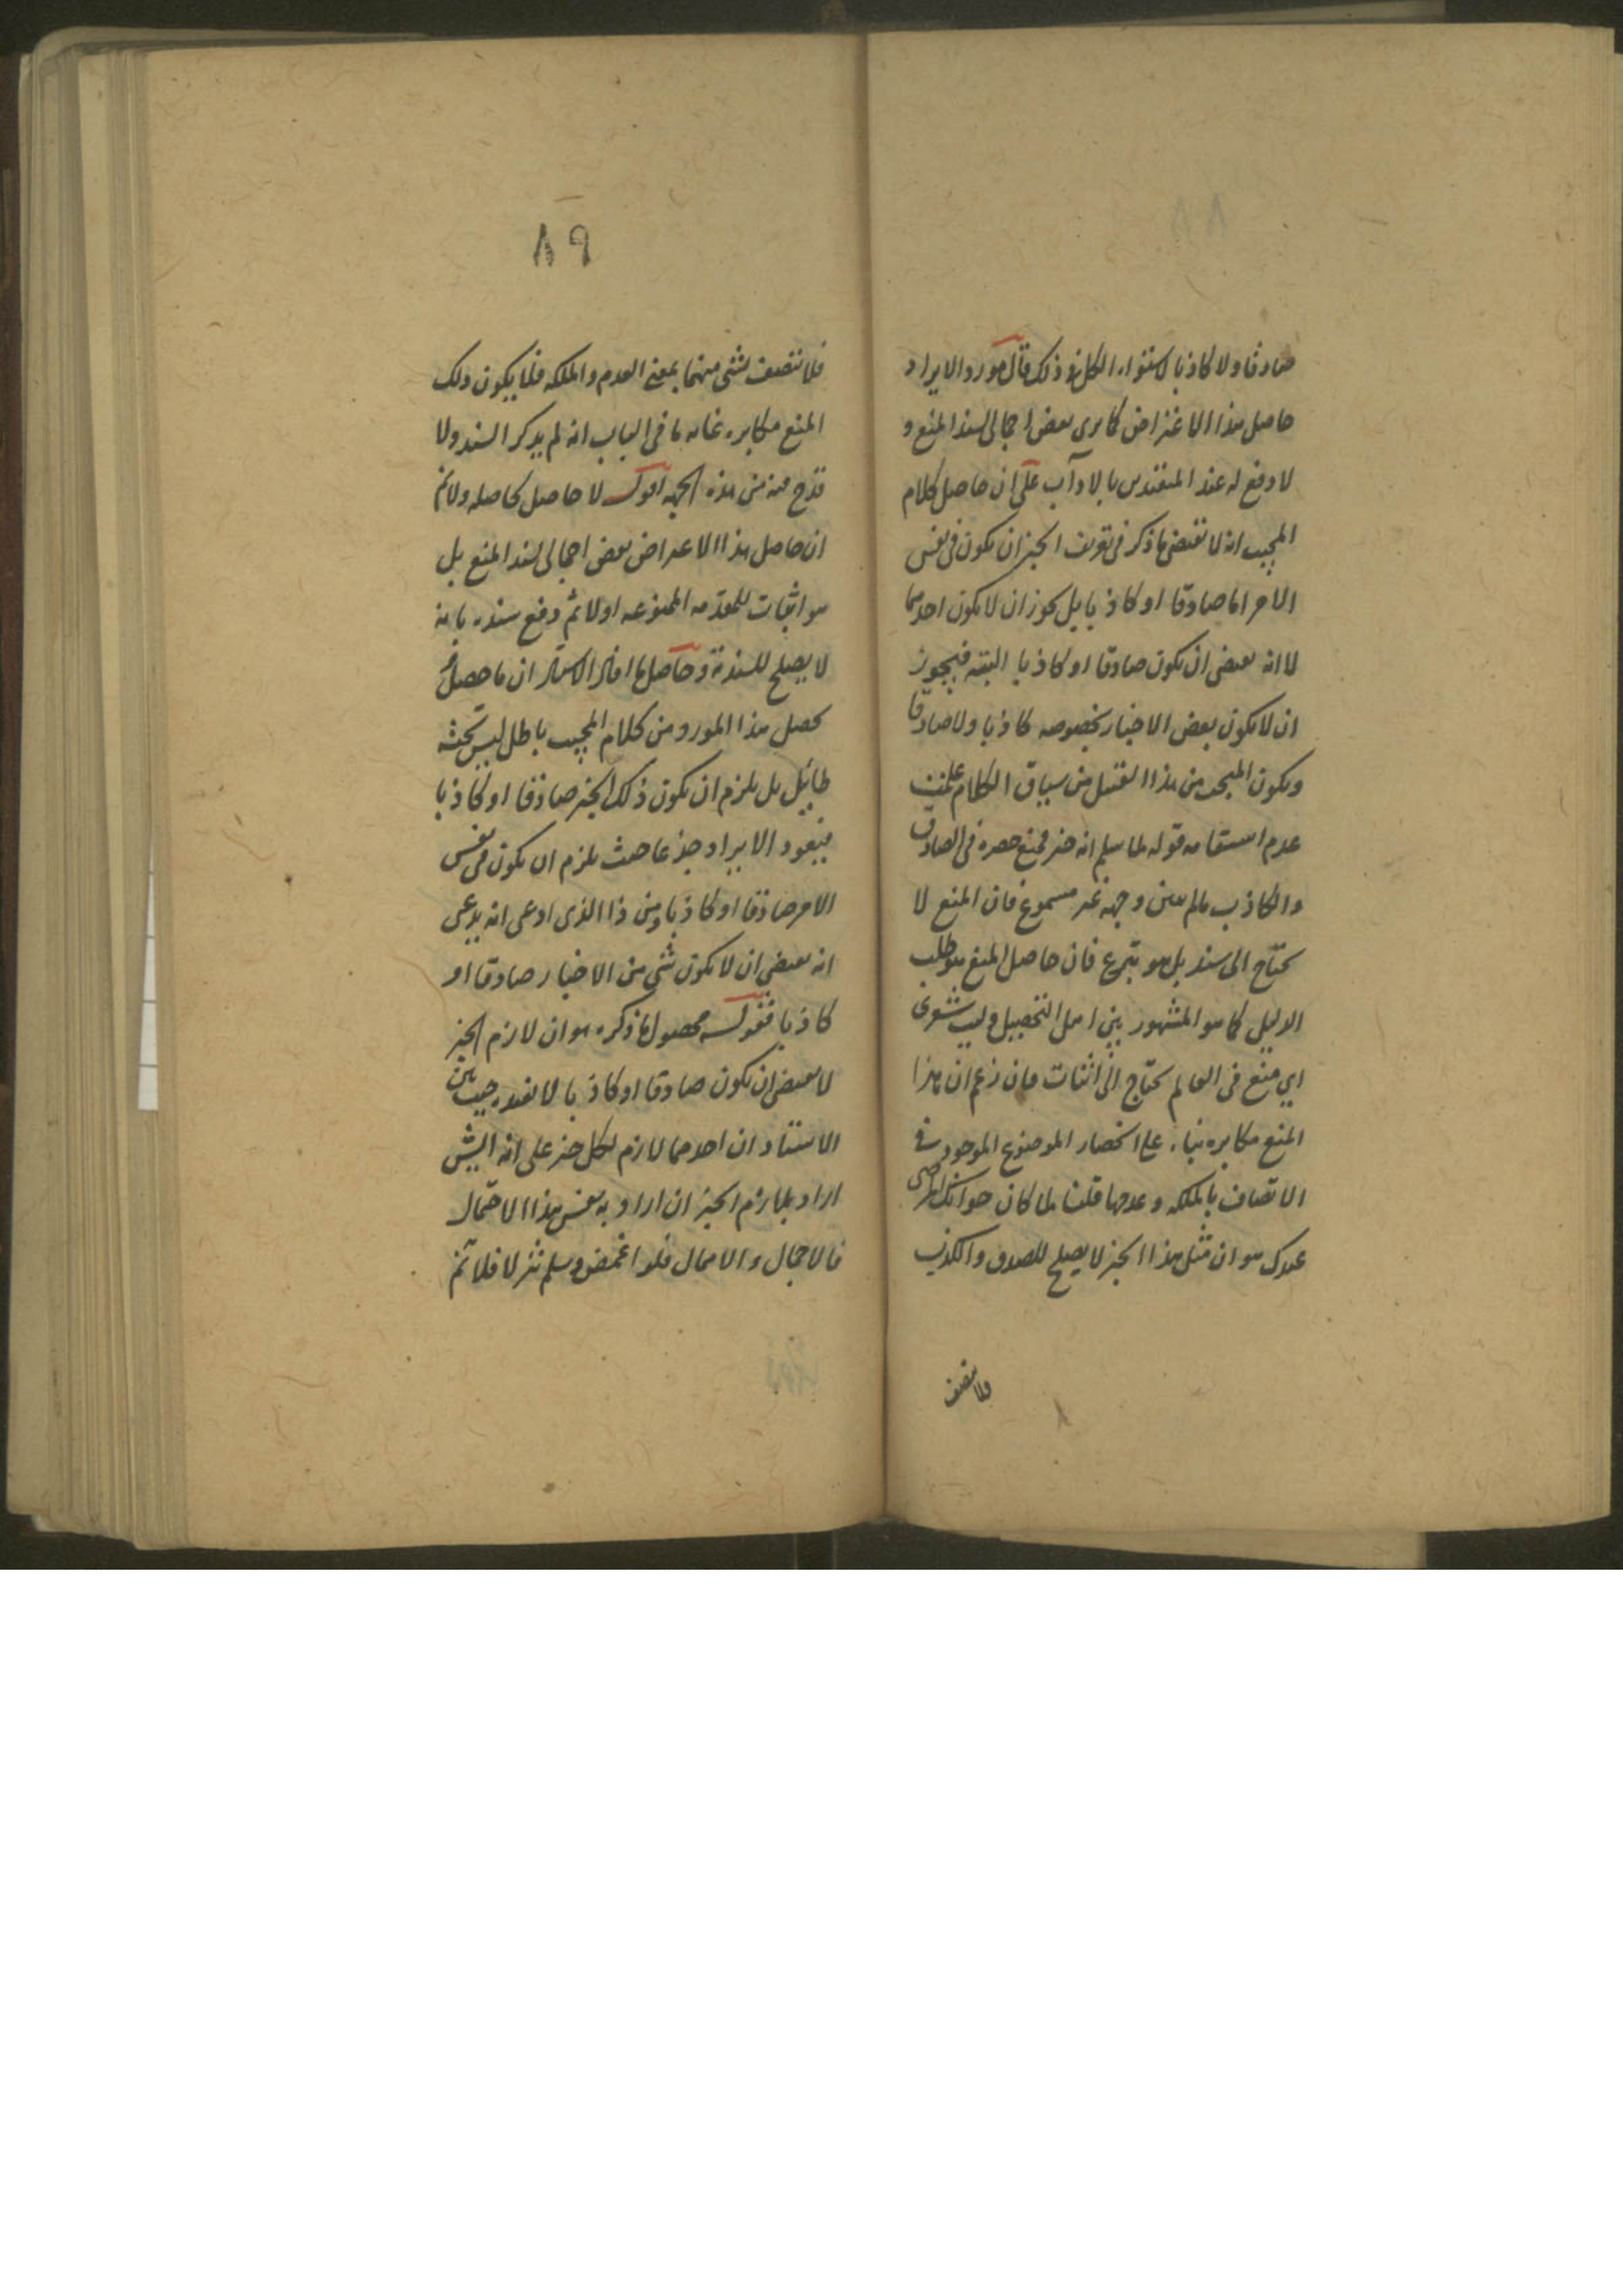 صادقا ولا كاذبا لاستواء الكل فى ذلك قال مورد الايراد
حاصل هذا الاعتراض كما يرى نقض اجمالى لسند المنع و
لا وقع له عند المتقدس بالاداب على ان حاصل كلام
المجيب انه لا يقتضى ما ذكر فى تعريف الخبر ان يكون فى نفس
الامر اما صادقا او كاذبا بل يجوز ان لا يكون احدهما
لا انه يقتضى ان يكون صادقا او كاذبا البتة فيجوز
ان لا يكون بعض الاخبار بخصوصه كاذبا ولا صادقا
ويكون المبحث من هذا القبيل من سياق الكلام علمت
عدم استقامه قوله لما سلم انه خبر فمنع حصره فى الصادق
والكاذب مالم يبين وجهه غير مسموع فان المنع لا
يحتاج الى سند بل هو تبرع فان حاصل المنع هو طلب
الدليل كما هو المشهور بين اهل التحصيل وليت شعرى
اي منع فى العالم يحتاج الى اثبات فان زعم ان هذا
المنع مكابره بناء على انحصار الموضوع الموجود فى
الاتصاف بالملكه وعدمها قلنا لما كان جوابك المرضى
عندك هو ان مثل هذا الخبر لا يصلح للصدق والكذب
فلا يتصف
٨٩
فلا يتصف بشئ منهما بمعنى العدم والملكه فلا يكون ذلك
المنع مكابره غايه ما فى الباب انه لم يذكر السند ولا
قدح فيه من هذه الجهه اقول لا حاصل لحاصله ولا تم
ان حاصل هذا الاعتراض نقض اجمالى لسند المنع بل
هو اثبات للمقدمه الممنوعه اولا ثم دفع سنده بانه
لا يصلح للسندية وحاصل ما افاد الاستاد ان ما حصل
يحصل هذا المورد من كلام المجيب باطل ليس تحته
طايل بل يلزم ان يكون ذلك الخبر صادقا او كاذبا
فيعود الايراد جذعا حيث يلزم ان يكون فى نفس
الامر صادقا او كاذبا ومن ذا الذى ادعى انه يدعى
انه يقتضى ان لا يكون شئ من الاخبار صادقا او
كاذبا فنقول محصول ما ذكره هو ان لازم الخبر
لا يقتضى ان يكون صادقا او كاذبا لا يفيده حيث بين
الاستاد ان احدهما لازم لكل خبر على انه ايش
اراد بلازم الخبر ان اراد به نفس هذا الاحتمال
فالاحتمال والاهمال فلو اغمض وسلم تنزلا فلا تم